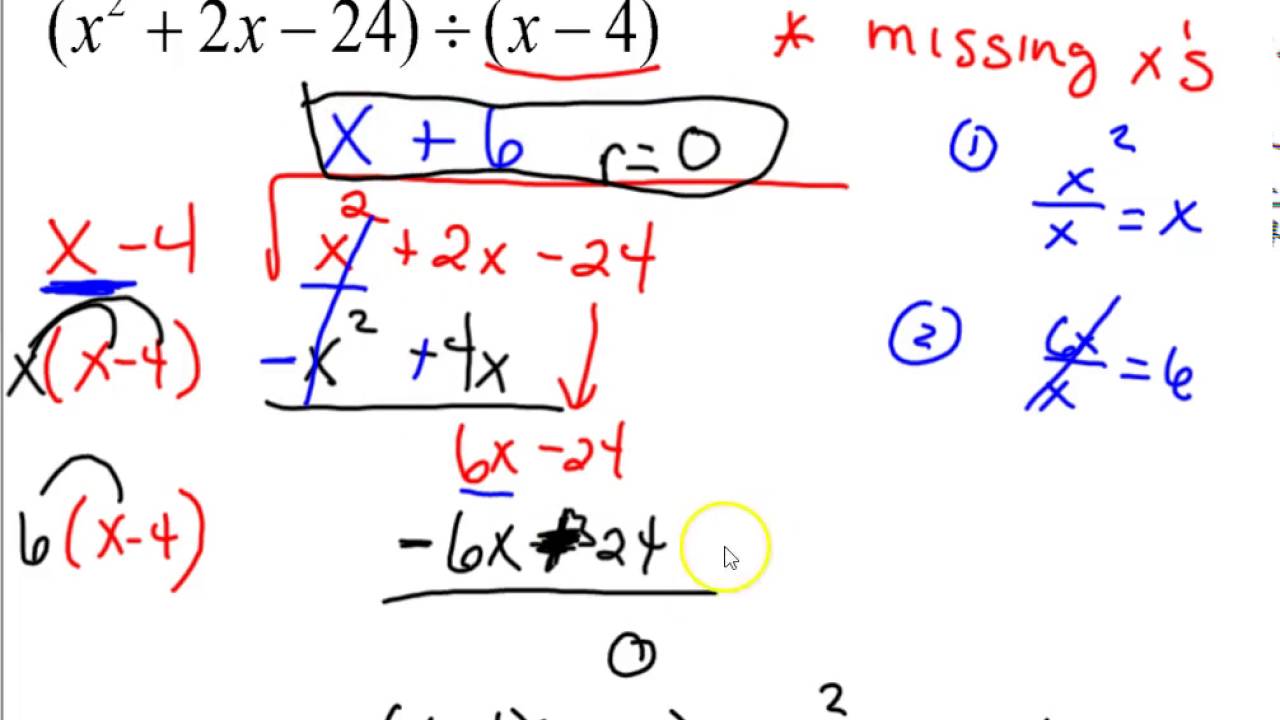 (x² + 2x − 24) ÷ (x − 4)
* missing x's
x + 6 r = 0
x - 4
x² + 2x - 24
x(x-4)
- x² + 4x
6x - 24
6(x-4)
- 6x 24
0
①
x²/x = x
②
6x/x = 6
2